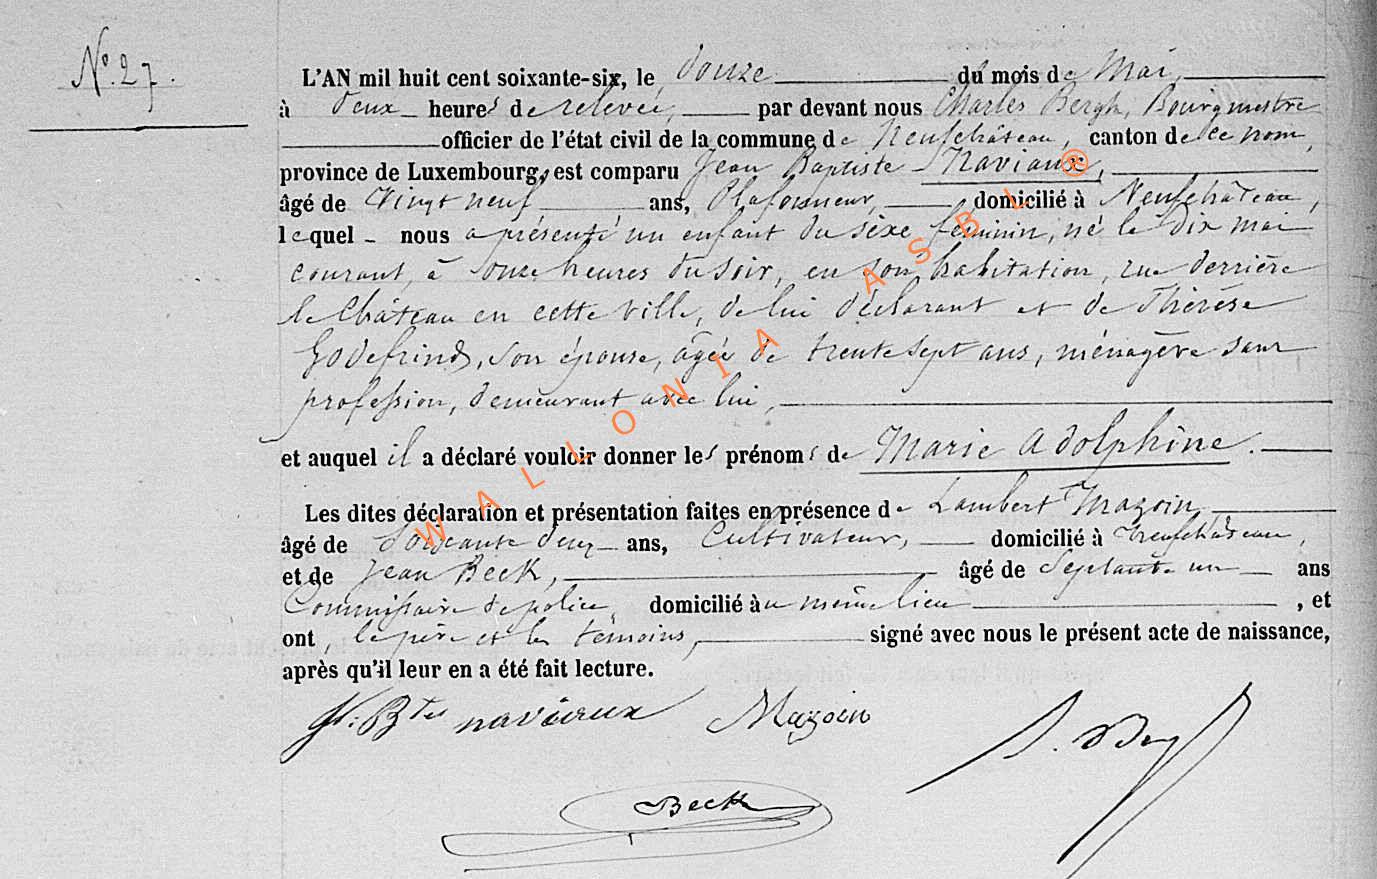 N° 27.
L'AN mil huit cent soixante-six, le douze du mois de Mai,
à deux heures de relevée, par devant nous Charles Bergh, Bourgmestre
officier de l'état civil de la commune de Neufchâteau, canton de ce nom,
province de Luxembourg, est comparu Jean Baptiste Naviaux,
âgé de Vingt neuf ans, Plafonneur, domicilié à Neufchâteau,
lequel nous a présenté un enfant du sèxe féminin, né le Dix mai
courant, à onze heures du soir, en son habitation, rue derrière
le Château en cette ville, de lui déclarant et de Thérèse
Godefrind, son épouse, âgée de trente sept ans, ménagère sans
profession, demeurant avec lui,
et auquel il a déclaré vouloir donner les prénoms de Marie Adolphine.
Les dites déclaration et présentation faites en présence de Lambert Mazoin,
âgé de Soixante deux ans, Cultivateur, domicilié à Neufchâteau,
et de Jean Beck, âgé de Septante un ans
Commissaire de police, domicilié au même lieu, et
ont le père et les témoins, signé avec nous le présent acte de naissance,
après qu'il leur en a été fait lecture.
Bte naviaux Mazoin
Beck
WALLONIA ASBL ®